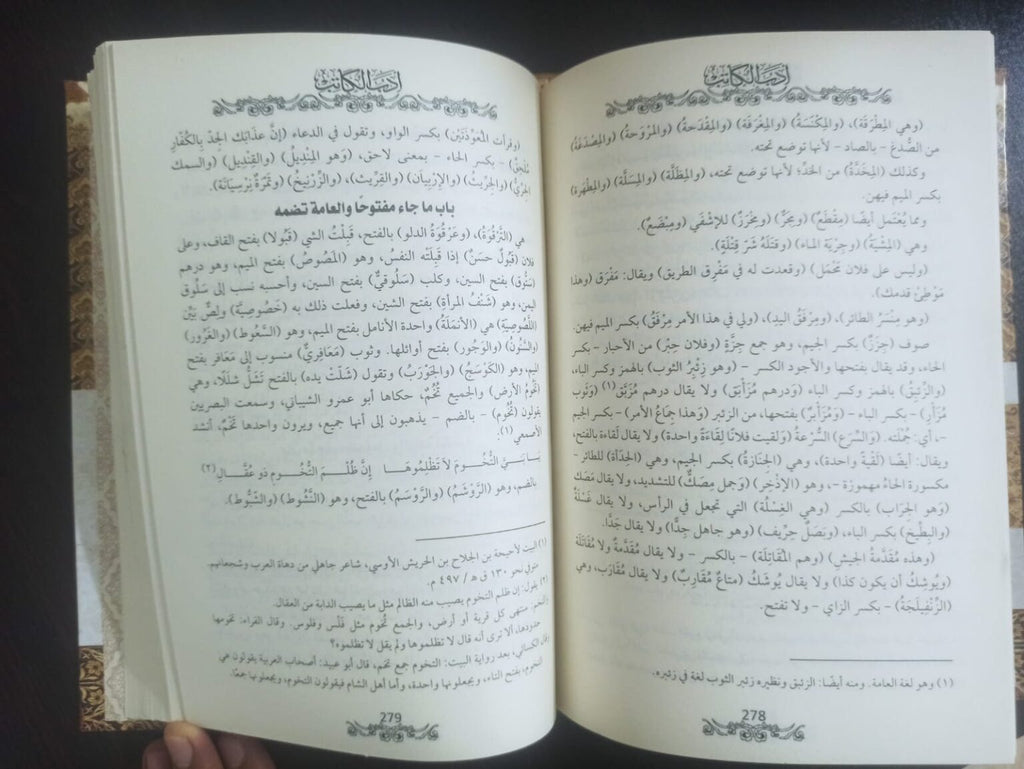 أدب الكاتب
(وهي المِطرَقَة)، (والمِكْنَسَةُ) (والمِغْرَفَة) (والمِقْدَحةُ) (والمِرْوَحةُ) (والمِصْدَغَةُ)
من الصُّدغ - بالصاد - لأنها توضع تحته.
وكذلك (المِخَدَّةُ) من الخدِّ؛ لأنها توضع تحته، (والمِظَلَّة) (والمِسَلَّة) (والمِطْهَرة)
بكسر الميم فيهن.
ومما يُعْتَمل أيضًا (مِقْطَعٌ) (ومِجَزٌّ) (ومِخْرَزٌ) للإشْفَي (ومِبْضَعٌ).
وهي (المِشْيَة) (وجِرْيَة الماء) (وقتَلَهُ شَرّ قِتْلَةٍ).
(وليس على فلان مَحْمَل) (وقعدت له في مَفْرِق الطريق) ويقال: مَفْرَق (وهذا
مَوْطِئ قدمك).
(وهو مِنْسَرُ الطائر)، (ومِرْفَقُ اليدِ)، (ولي في هذا الأمر مِرْفَقٌ) بكسر الميم فيهن.
صوف (جِزَزٌ) بكسر الجيم، وهو جمع جِزَّةٍ (وفلان حِبْر) من الأحبار - بكسر
الحاء، وقد يقال بفتحها والأجود الكسر - (وهو زِئْبِرُ الثوب) بالهمز وكسر الباء،
(والزِّئبِقُ) بالهمز وكسر الباء (ودرهم مُزَأبَق) ولا يقال درهم مُزَبَّق (١) (وثوب
مُزَأبِر) - بكسر الباء - (ومُزَأبَرٌ) بفتحها، من الزئبر (وهذا جِمَاعُ الأمر) - بكسر الجيم
-، أي: جُمْلَته. (والسِّرَع) السُّرْعةُ (ولقيت فلانًا لِقَاءَةً واحدة) ولا يقال لَقاءة بالفتح،
ويقال: أيضًا (لَقْيةً واحدة)، وهي (الجِنَازةُ) بكسر الجيم، وهي (الحِدَأة) للطائر -
مكسورة الحاء مهموزة -، وهو (الإذْخِر) (وجمل مِصَكٌّ) للتشديد، ولا يقال مَصَك
(وهو الجِرَاب) بالكسر (وهي الغِسْلَة) التي تجعل في الرأس، ولا يقال غَسْلَةٌ
(والبِطِّيخ) بكسر الباء، (وبَصَلٌ حِرِّيف) (وهو جاهل جِدًّا) ولا يقال جَدًّا.
(وهذه مُقَدِّمةُ الجيش) (وهم المُقَاتِلَة) - بالكسر - ولا يقال مُقَدَّمةٌ ولا مُقَاتَلَة
(ويُوشِكُ أن يكون كذا) ولا يقال يُوشَكُ (متاعٌ مُقَارِبٌ) ولا يقال مُقَارَب، وهي
(الزِّنْفِيلَجَةُ) - بكسر الزاي - ولا تفتح.
(١) وهو لغة العامة. ومنه أيضًا: الزئبق ونظيره زئبر الثوب لغة في زئبره.
278
أدب الكاتب
(وقرأت المعوِّذَتَيْن) بكسر الواو، وتقول في الدعاء (إنَّ عذابَك الجِدَّ بالكفَّارِ
مُلْحِقٌ) - بكسر الحاء - بمعنى لاحق، (وهو المِنْدِيلُ) (والقِنْدِيل) (والسمك
الجِرِّيُّ) (والجِرِّيثُ) (والإرْبيان) (والقِرِّيث)، (والزِّرْنيخُ) (وتَمْرَةٌ نِرْسِيَانَة).
باب ما جاء مفتوحًا والعامة تضمه
هي (التَّرْقُوَةُ)، (وعَرْقُوَة الدلو) بالفتح، قَبِلْتُ الشي (قَبُولًا) بفتح القاف، وعلى
فلان (قَبُولٌ حسَنٌ) إذا قَبِلَتْه النفسُ، وهو (المَصُوصُ) بفتح الميم، وهو درهم
(سَتُّوق) بفتح السين، وكلب (سَلُوقيٌّ) بفتح السين، وأحسبه نسب إلى سَلُوق
اليمن، وهو (شَنْفُ المرأة) بفتح الشين، وفعلت ذلك به (خَصُوصيَّة) ولصٌّ بَيِّن
(اللَّصُوصِيَّة) هي (الأنمَلَةُ) واحدة الأنامل بفتح الميم، وهو (السَّعُوط) (والغَرُور)
(والسَّنُونُ) (والوَجُور) بفتح أوائلها. وثوب (مَعَافِريٌّ) منسوب إلى مَعَافر بفتح
الميم، وهو (الكَوْسَجُ) (والجَوْرَبُ) وتقول (شَلَّتْ يده) بالفتح تَشَلُّ شَلَلًا، وهي
(تَخُومُ الأرض) والجميع تُخُمٌ، حكاها أبو عمرو الشيباني، وسمعت البصريين
يقولون (تُخُوم) - بالضم - يذهبون إلى أنها جميع، ويرون واحدها تَخْمٌ، أنشد
الأصمعي (١).
يَا بَنِيَّ التُّخُومَ لاَ تَظْلِمُوهَا إِنَّ ظُلْمَ التُّخُومِ ذو عُقَّالِ (٢)
بالضم، وهو (الرَّوْشَمُ) (والرَّوْسَمُ) بالفتح، وهو (الشَّبُّوط).
(١) البيت لأحيحة بن الجلاح بن الحريش الأوسي، شاعر جاهلي من دهاة العرب وشجعانهم.
متوفي نحو ١٣٠ ق هـ / ٤٩٧ م.
(٢) يقول: إن ظلم التخوم يصيب منه الظالم مثل ما يصيب الدابة من العقال.
والتخم. منتهى كل قرية أو أرض، والجمع تُخوم مثل فَلْس وفلوس. وقال الفراء: تخومها
حدودها، ألا ترى أنه قال لا تظلموها ولم يقل لا تظلموه؟
وقال الكسائي، بعد رواية البيت: التخوم جمع تخم، قال أبو عبيد: أصحاب العربية يقولون هي
التخوم، بفتح التاء، ويجعلونها واحدة، وأما أهل الشام فيقولون التخوم، ويجعلونها جمعًا.
279